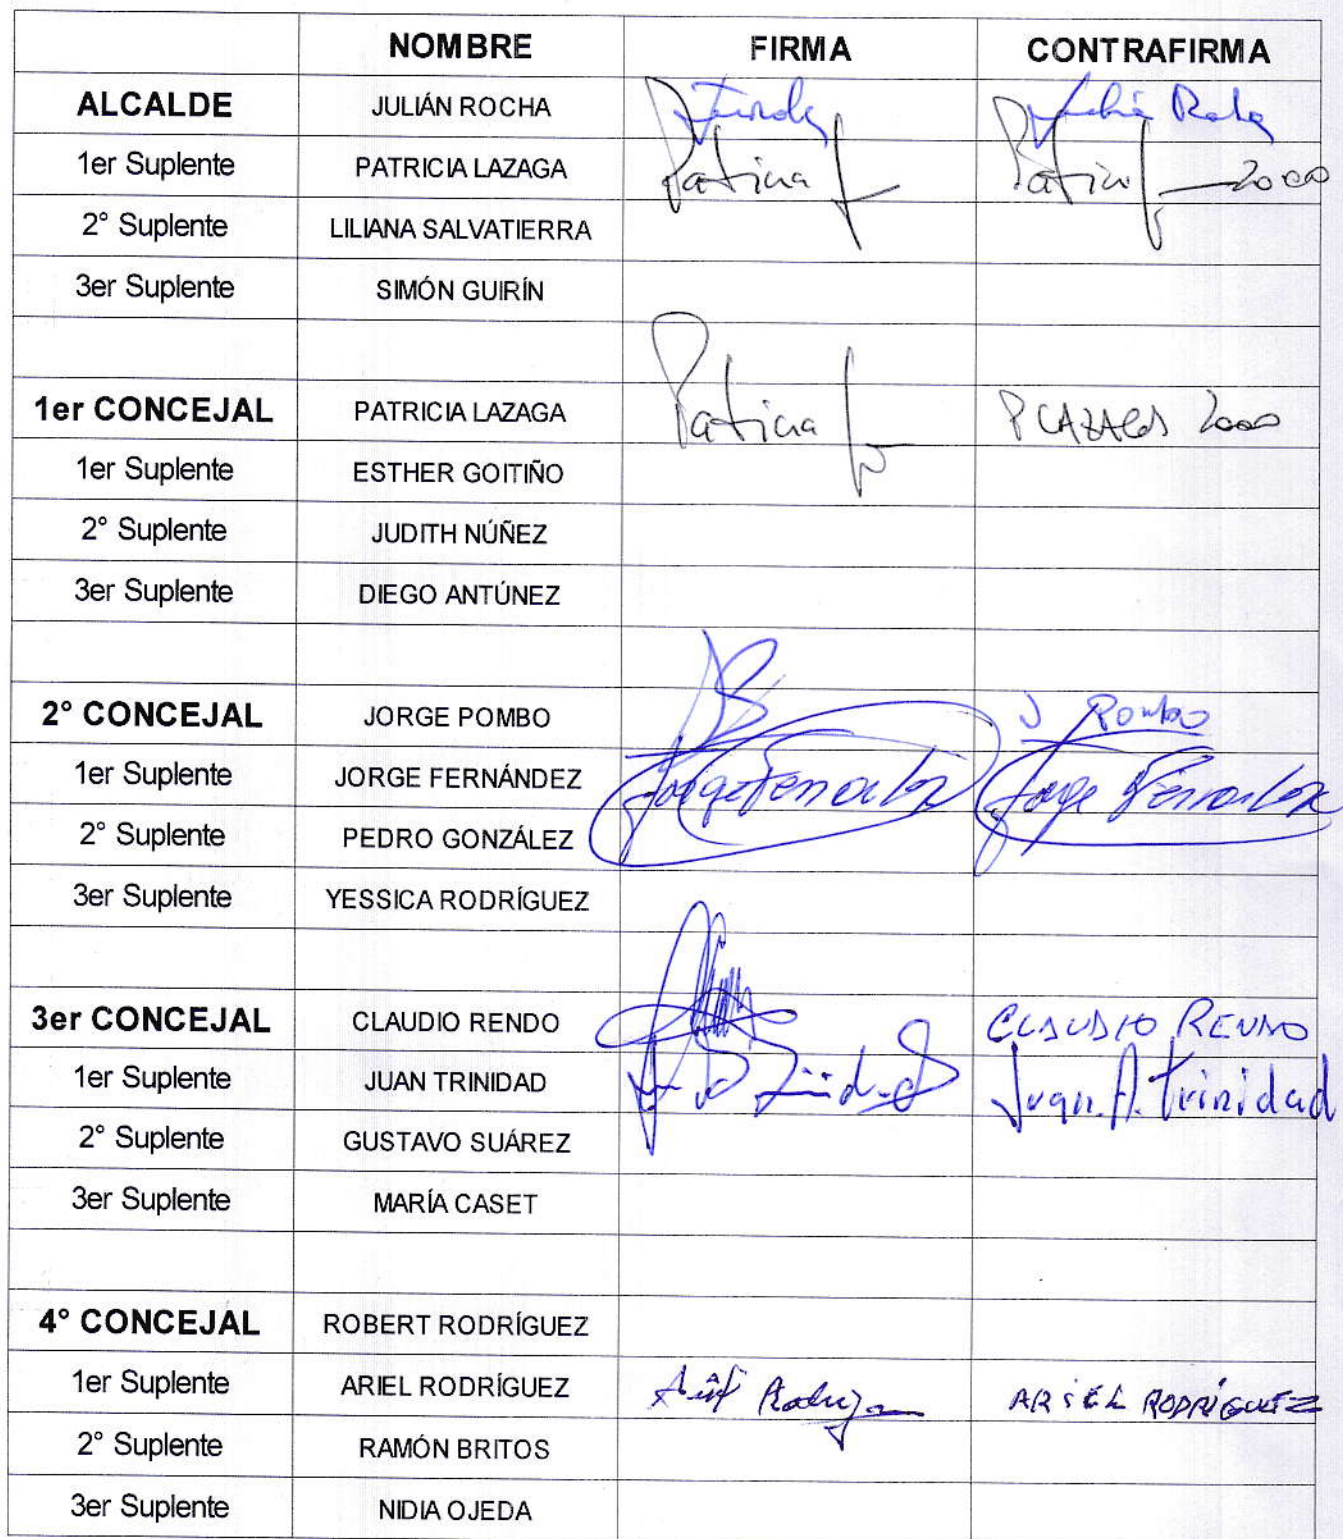 NOMBRE FIRMA CONTRAFIRMA
ALCALDE JULIÁN ROCHA Julián Rocha
1er Suplente PATRICIA LAZAGA Patricia Patricia 2000
2° Suplente LILIANA SALVATIERRA
3er Suplente SIMÓN GUIRÍN
1er CONCEJAL PATRICIA LAZAGA Patricia P LAZAGA 2000
1er Suplente ESTHER GOITIÑO
2° Suplente JUDITH NÚÑEZ
3er Suplente DIEGO ANTÚNEZ
2° CONCEJAL JORGE POMBO J Pombo
1er Suplente JORGE FERNÁNDEZ Jorge Fernandez Jorge Fernandez
2° Suplente PEDRO GONZÁLEZ
3er Suplente YESSICA RODRÍGUEZ
3er CONCEJAL CLAUDIO RENDO CLAUDIO RENDO
1er Suplente JUAN TRINIDAD Juan A. Trinidad
2° Suplente GUSTAVO SUÁREZ
3er Suplente MARÍA CASET
4° CONCEJAL ROBERT RODRÍGUEZ
1er Suplente ARIEL RODRÍGUEZ Ariel Rodríguez ARIEL RODRÍGUEZ
2° Suplente RAMÓN BRITOS
3er Suplente NIDIA OJEDA